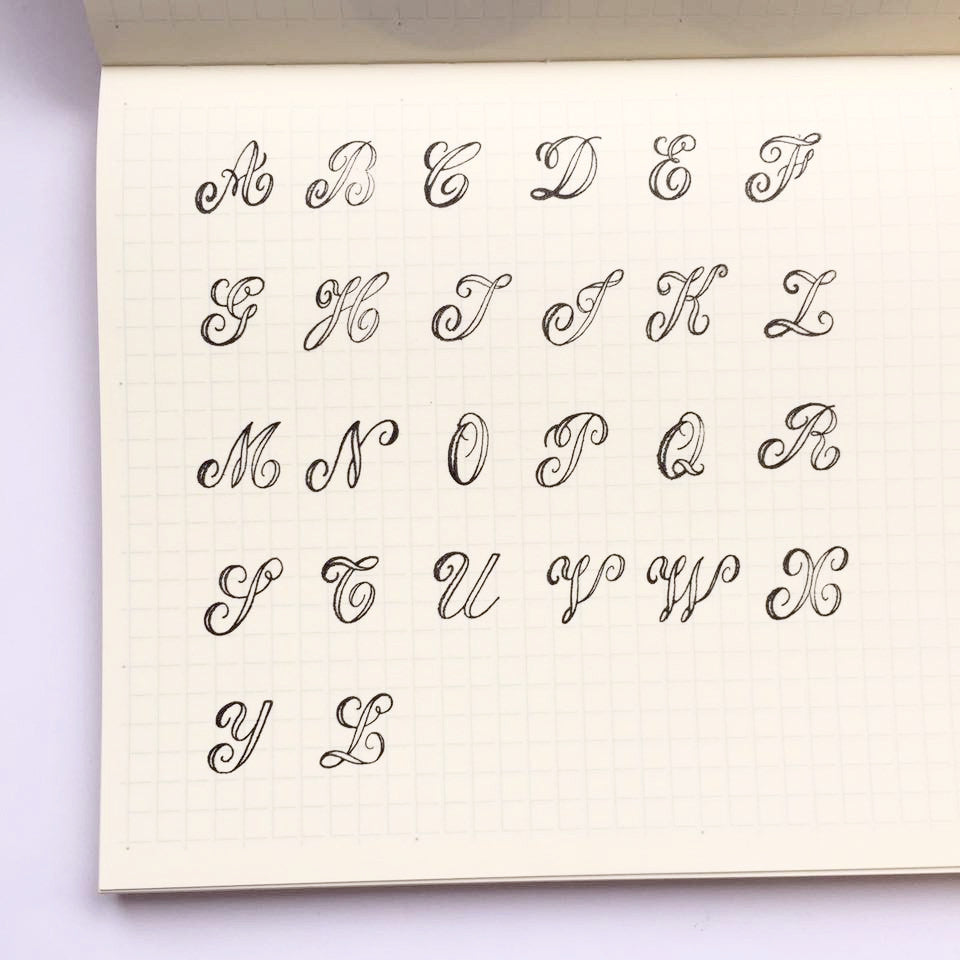 A B C D E F
G H I J K Z
M N O P Q R
S T U V W X
Y L